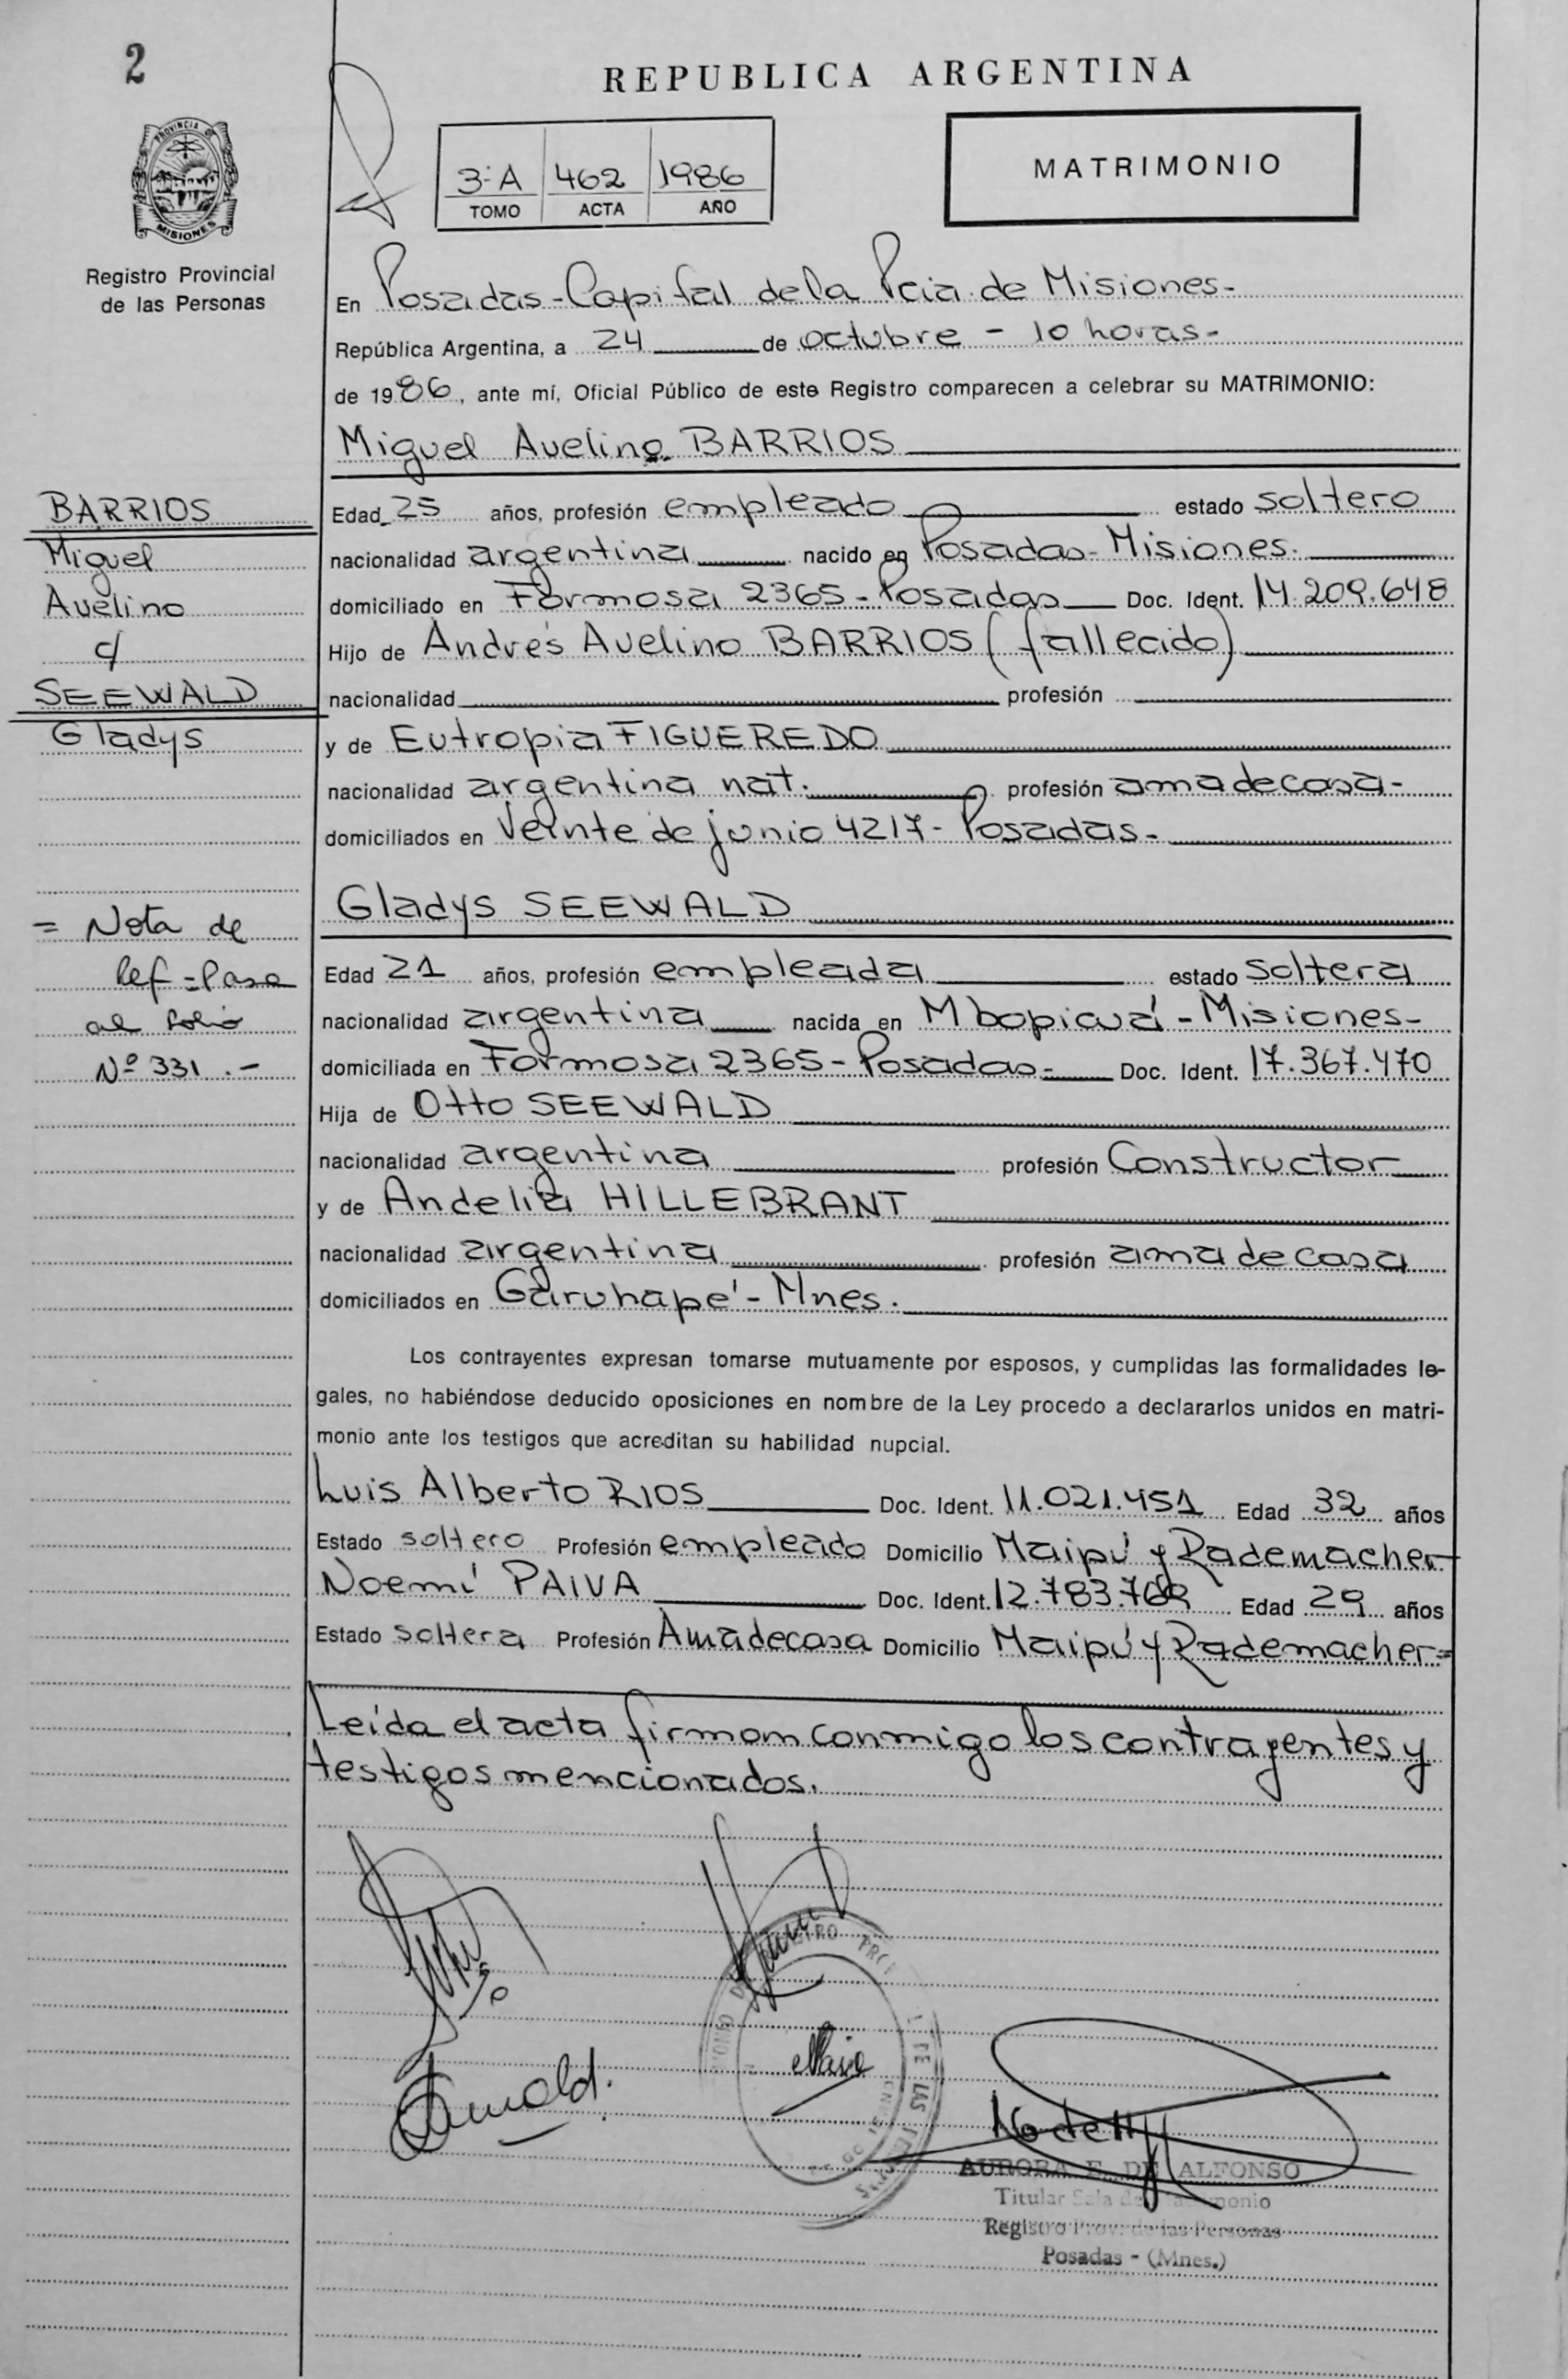 2
REPUBLICA ARGENTINA
PROVINCIA DE
MISIONES
Registro Provincial
de las Personas
3ª A 462 1986
TOMO ACTA AÑO
MATRIMONIO
En Posadas - Capital de la Pcia. de Misiones -
República Argentina, a 24 de octubre - 10 horas -
de 1986, ante mí, Oficial Público de este Registro comparecen a celebrar su MATRIMONIO:
Miguel Avelino BARRIOS
BARRIOS
Miguel
Avelino
c/
SEEWALD
Gladys
Edad 25 años, profesión empleado estado soltero
nacionalidad argentina nacido en Posadas - Misiones.
domiciliado en Formosa 2365 - Posadas Doc. Ident. 14.209.648
Hijo de Andrés Avelino BARRIOS (fallecido)
nacionalidad profesión
y de Eutropia FIGUEREDO
nacionalidad argentina nat. profesión ama de casa -
domiciliados en Veinte de junio 4217 - Posadas -
Gladys SEEWALD
= Nota de
Ref = Pasa
al folio
Nº 331 . -
Edad 21 años, profesión empleada estado soltera
nacionalidad argentina nacida en Mbopicuá - Misiones -
domiciliada en Formosa 2365 - Posadas - Doc. Ident. 17.367.470
Hija de Otto SEEWALD
nacionalidad argentina profesión Constructor
y de Andelia HILLEBRANT
nacionalidad argentina profesión ama de casa
domiciliados en Garuhapé - Mnes.
Los contrayentes expresan tomarse mutuamente por esposos, y cumplidas las formalidades le-
gales, no habiéndose deducido oposiciones en nombre de la Ley procedo a declararlos unidos en matri-
monio ante los testigos que acreditan su habilidad nupcial.
Luis Alberto RIOS Doc. Ident. 11.021.451 Edad 32 años
Estado soltero Profesión empleado Domicilio Maipú y Rademacher
Noemí PAIVA Doc. Ident. 12.783.769 Edad 29 años
Estado soltera Profesión Ama de casa Domicilio Maipú y Rademacher =
Leída el acta firman conmigo los contrayentes y
testigos mencionados.
AURORA E. DE ALFONSO
Titular Sala de Matrimonio
Registro Prov. de las Personas
Posadas - (Mnes.)